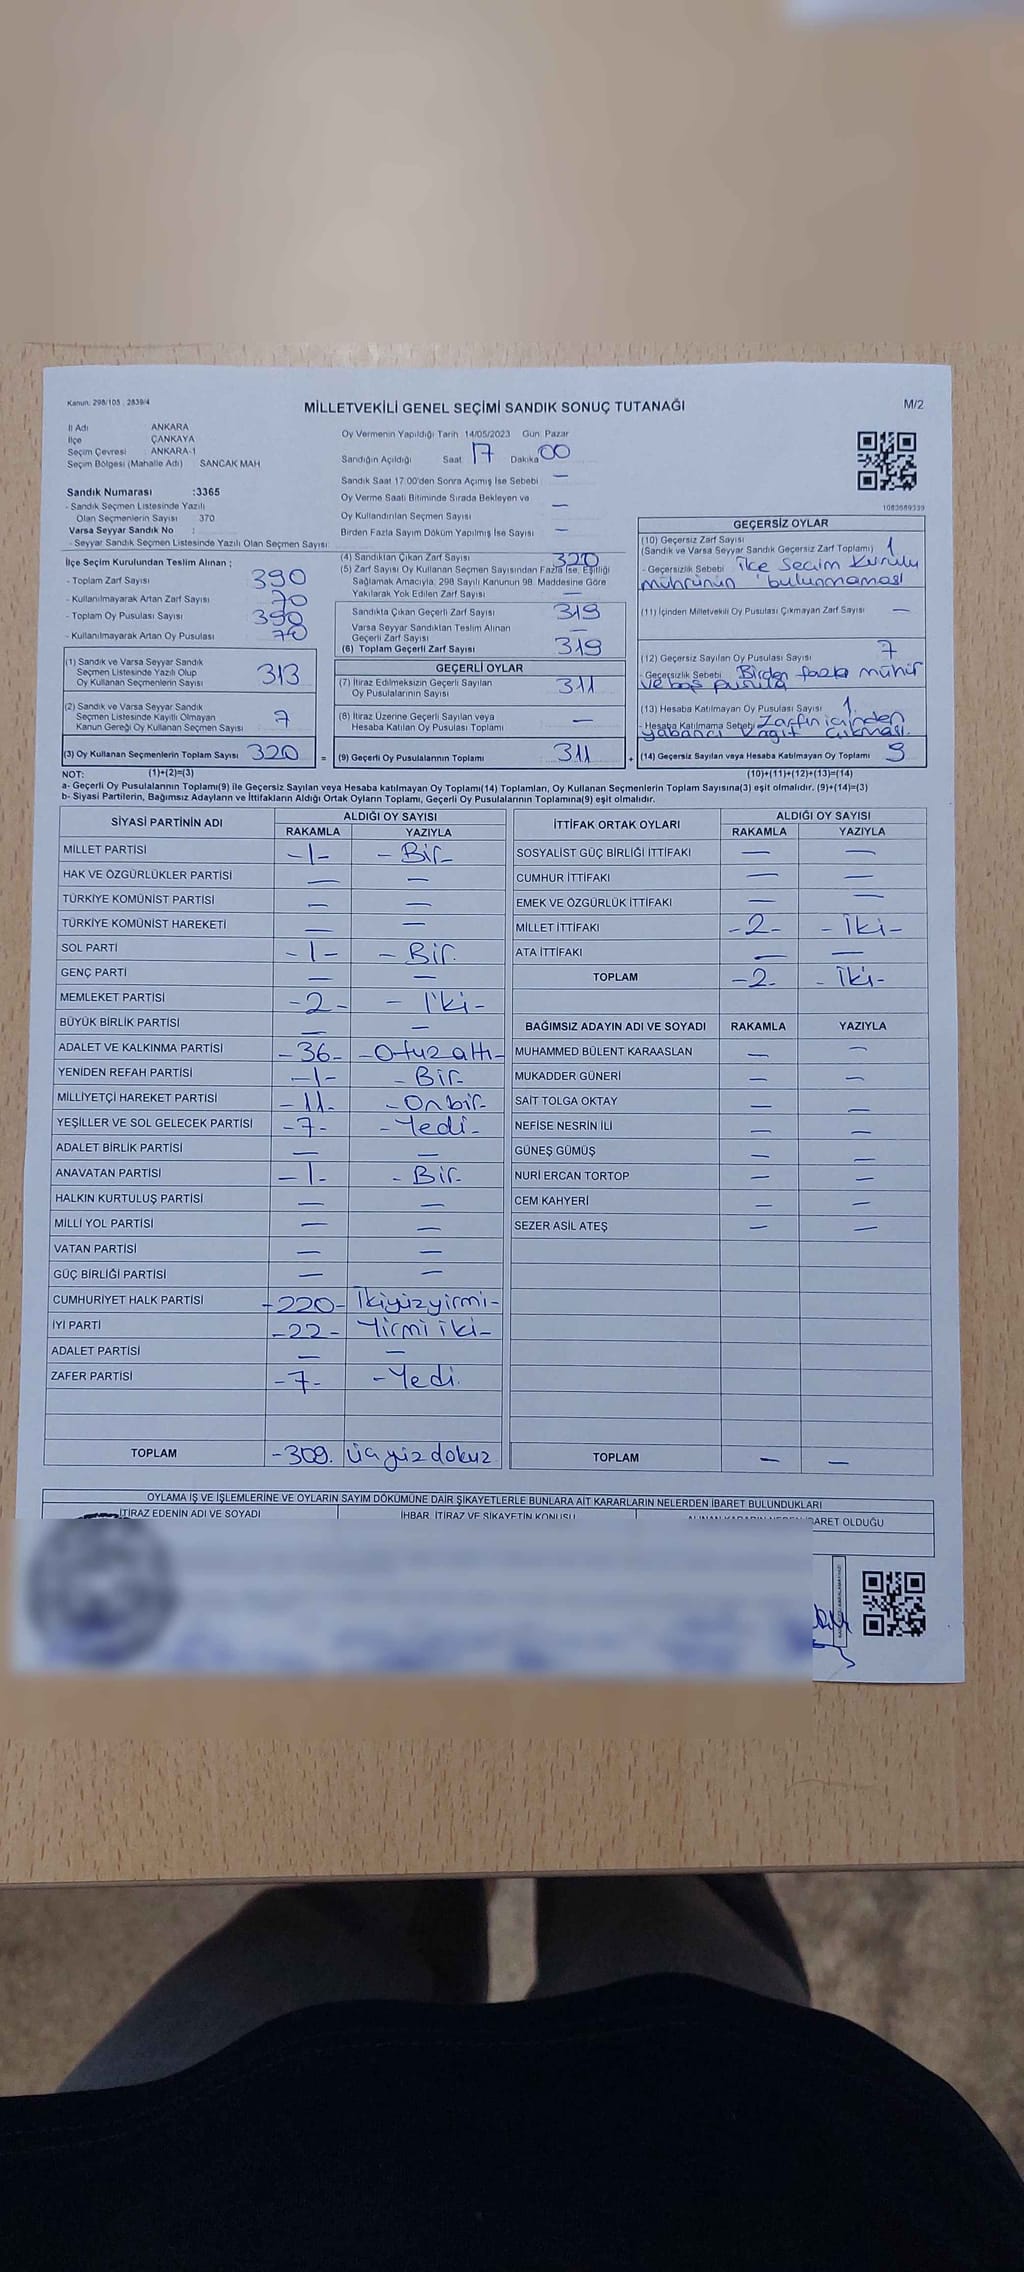 Kanun: 298/105 , 2839/4
MİLLETVEKİLİ GENEL SEÇİMİ SANDIK SONUÇ TUTANAĞI
M/2
İl Adı ANKARA
İlçe ÇANKAYA
Seçim Çevresi ANKARA-1
Seçim Bölgesi (Mahalle Adı) SANCAK MAH
Sandık Numarası :3365
- Sandık Seçmen Listesinde Yazılı
Olan Seçmenlerin Sayısı 370
Varsa Seyyar Sandık No :
- Seyyar Sandık Seçmen Listesinde Yazılı Olan Seçmen Sayısı:
Oy Vermenin Yapıldığı Tarih 14/05/2023 Gün: Pazar
Sandığın Açıldığı Saat 17 Dakika 00
Sandık Saat 17:00'den Sonra Açımış İse Sebebi —
Oy Verme Saati Bitiminde Sırada Bekleyen ve
Oy Kullandırılan Seçmen Sayısı —
Birden Fazla Sayım Döküm Yapılmış İse Sayısı —
1083689339
İlçe Seçim Kurulundan Teslim Alınan ;
- Toplam Zarf Sayısı 390
- Kullanılmayarak Artan Zarf Sayısı 70
- Toplam Oy Pusulası Sayısı 390
- Kullanılmayarak Artan Oy Pusulası 70
(1) Sandık ve Varsa Seyyar Sandık
Seçmen Listesinde Yazılı Olup
Oy Kullanan Seçmenlerin Sayısı 313
(2) Sandık ve Varsa Seyyar Sandık
Seçmen Listesinde Kayıtlı Olmayan
Kanun Gereği Oy Kullanan Seçmen Sayısı 7
(3) Oy Kullanan Seçmenlerin Toplam Sayısı 320
(4) Sandıktan Çıkan Zarf Sayısı 320
(5) Zarf Sayısı Oy Kullanan Seçmen Sayısından Fazla İse, Eşitliği
Sağlamak Amacıyla, 298 Sayılı Kanunun 98. Maddesine Göre
Yakılarak Yok Edilen Zarf Sayısı —
Sandıkta Çıkan Geçerli Zarf Sayısı 319
Varsa Seyyar Sandıktan Teslim Alınan
Geçerli Zarf Sayısı —
(6) Toplam Geçerli Zarf Sayısı 319
GEÇERLİ OYLAR
(7) İtiraz Edilmeksizin Geçerli Sayılan
Oy Pusulalarının Sayısı 311
(8) İtiraz Üzerine Geçerli Sayılan veya
Hesaba Katılan Oy Pusulası Toplamı —
= (9) Geçerli Oy Pusulalarının Toplamı 311
GEÇERSİZ OYLAR
(10) Geçersiz Zarf Sayısı
(Sandık ve Varsa Seyyar Sandık Geçersiz Zarf Toplamı) 1
- Geçersizlik Sebebi İlçe Seçim Kurulu
mührünün bulunmaması
(11) İçinden Milletvekili Oy Pusulası Çıkmayan Zarf Sayısı —
(12) Geçersiz Sayılan Oy Pusulası Sayısı 7
- Geçersizlik Sebebi Birden fazla mühür
ve boş pusula
(13) Hesaba Katılmayan Oy Pusulası Sayısı 1.
- Hesaba Katılmama Sebebi Zarfın içinden
yabancı kağıt çıkması.
+ (14) Geçersiz Sayılan veya Hesaba Katılmayan Oy Toplamı 9
NOT: (1)+(2)=(3) (10)+(11)+(12)+(13)=(14)
a- Geçerli Oy Pusulalarının Toplamı(9) ile Geçersiz Sayılan veya Hesaba katılmayan Oy Toplamı(14) Toplamları, Oy Kullanan Seçmenlerin Toplam Sayısına(3) eşit olmalıdır. (9)+(14)=(3)
b- Siyasi Partilerin, Bağımsız Adayların ve İttifakların Aldığı Ortak Oyların Toplamı, Geçerli Oy Pusulalarının Toplamına(9) eşit olmalıdır.
SİYASİ PARTİNİN ADI ALDIĞI OY SAYISI
RAKAMLA YAZIYLA
MİLLET PARTİSİ -1- - Bir -
HAK VE ÖZGÜRLÜKLER PARTİSİ — —
TÜRKİYE KOMÜNİST PARTİSİ — —
TÜRKİYE KOMÜNİST HAREKETİ — —
SOL PARTİ -1- - Bir.
GENÇ PARTİ — —
MEMLEKET PARTİSİ -2- - İki -
BÜYÜK BİRLİK PARTİSİ — —
ADALET VE KALKINMA PARTİSİ -36- -Otuz altı-
YENİDEN REFAH PARTİSİ -1- - Bir-
MİLLİYETÇİ HAREKET PARTİSİ -11- -Onbir-
YEŞİLLER VE SOL GELECEK PARTİSİ -7- -Yedi-
ADALET BİRLİK PARTİSİ — —
ANAVATAN PARTİSİ -1- - Bir-
HALKIN KURTULUŞ PARTİSİ — —
MİLLİ YOL PARTİSİ — —
VATAN PARTİSİ — —
GÜÇ BİRLİĞİ PARTİSİ — —
CUMHURİYET HALK PARTİSİ -220- İkiyüzyirmi-
İYİ PARTİ -22- Yirmi iki-
ADALET PARTİSİ — —
ZAFER PARTİSİ -7- -Yedi.
TOPLAM -309. Üçyüzdokuz
İTTİFAK ORTAK OYLARI ALDIĞI OY SAYISI
RAKAMLA YAZIYLA
SOSYALİST GÜÇ BİRLİĞİ İTTİFAKI — —
CUMHUR İTTİFAKI — —
EMEK VE ÖZGÜRLÜK İTTİFAKI — —
MİLLET İTTİFAKI -2- - İki-
ATA İTTİFAKI — —
TOPLAM -2- - İki-
BAĞIMSIZ ADAYIN ADI VE SOYADI RAKAMLA YAZIYLA
MUHAMMED BÜLENT KARAASLAN — —
MUKADDER GÜNERİ — —
SAİT TOLGA OKTAY — —
NEFİSE NESRİN İLİ — —
GÜNEŞ GÜMÜŞ — —
NURİ ERCAN TORTOP — —
CEM KAHYERİ — —
SEZER ASİL ATEŞ — —
TOPLAM — —
OYLAMA İŞ VE İŞLEMLERİNE VE OYLARIN SAYIM DÖKÜMÜNE DAİR ŞİKAYETLERLE BUNLARA AİT KARARLARIN NELERDEN İBARET BULUNDUKLARI
İTİRAZ EDENİN ADI VE SOYADI İHBAR, İTİRAZ VE ŞİKAYETİN KONUSU
OLDUĞU